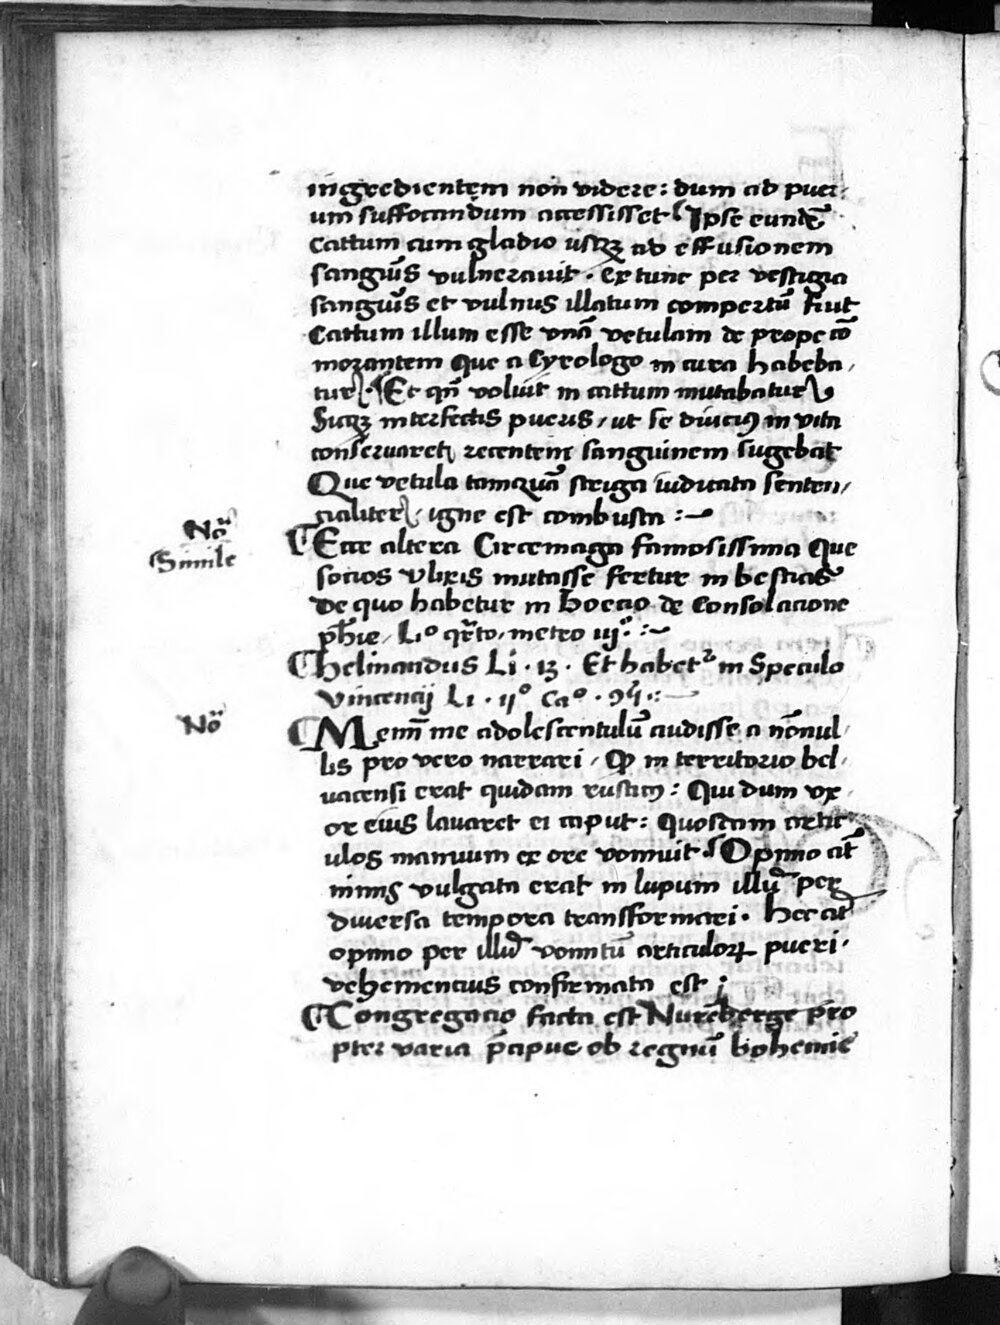 ingredientem non videre: dum ad puer-
um suffocandum accessisset Ipse eundē
Cattum cum gladio usqꝫ ad effusionem
sanguīs vulneravit. ex tunc per vestigia
sanguīs et vulnus illatum compertū fuit
Cattum illum esse vnā vetulam de prope cō
morantem Que a Cyrologo in cura habeba-
tur. ¶ Et qn̄ voluit in cattum mutabatur
Sicqꝫ interfectis pueris, ut se diuciꝰ in vita
conservaret, recentem sanguinem sugebat
Que vetula tamquā striga iudicata senten-
cialiter, igne est combusta :~
No
Simile
¶ Ecce altera Circe maga famosissima Que
socios vlixis mutasse fertur in bestias
De quo habetur in Boecio de Consolacione
ph̄ie, Li° qr̄to, metro iij° :~
¶ Helinandus Li. 13. Et habet᷑ in Speculo
Vincencij Li. ij° Ca°. 95 :~
No
¶ Memī me adolescentulū audisse a nōnul-
lis pro vero narrari, Qꝫ in territorio bel-
uacensi erat quidam rusticꝰ: Qui dum vx-
or eius lavaret ei caput: Quosdam artic-
ulos manuum ex ore vomuit. Opinio aūt
nimis vulgata erat in lupum illū per
diversa tempora transformari. Hec aūt
opinio per illū vomitū articuloꝝ pueri.
vehemencius confirmata est ;
¶ Congregacio facta est Nurēberge pro
pter varia p̄cipue ob regnū bohemie